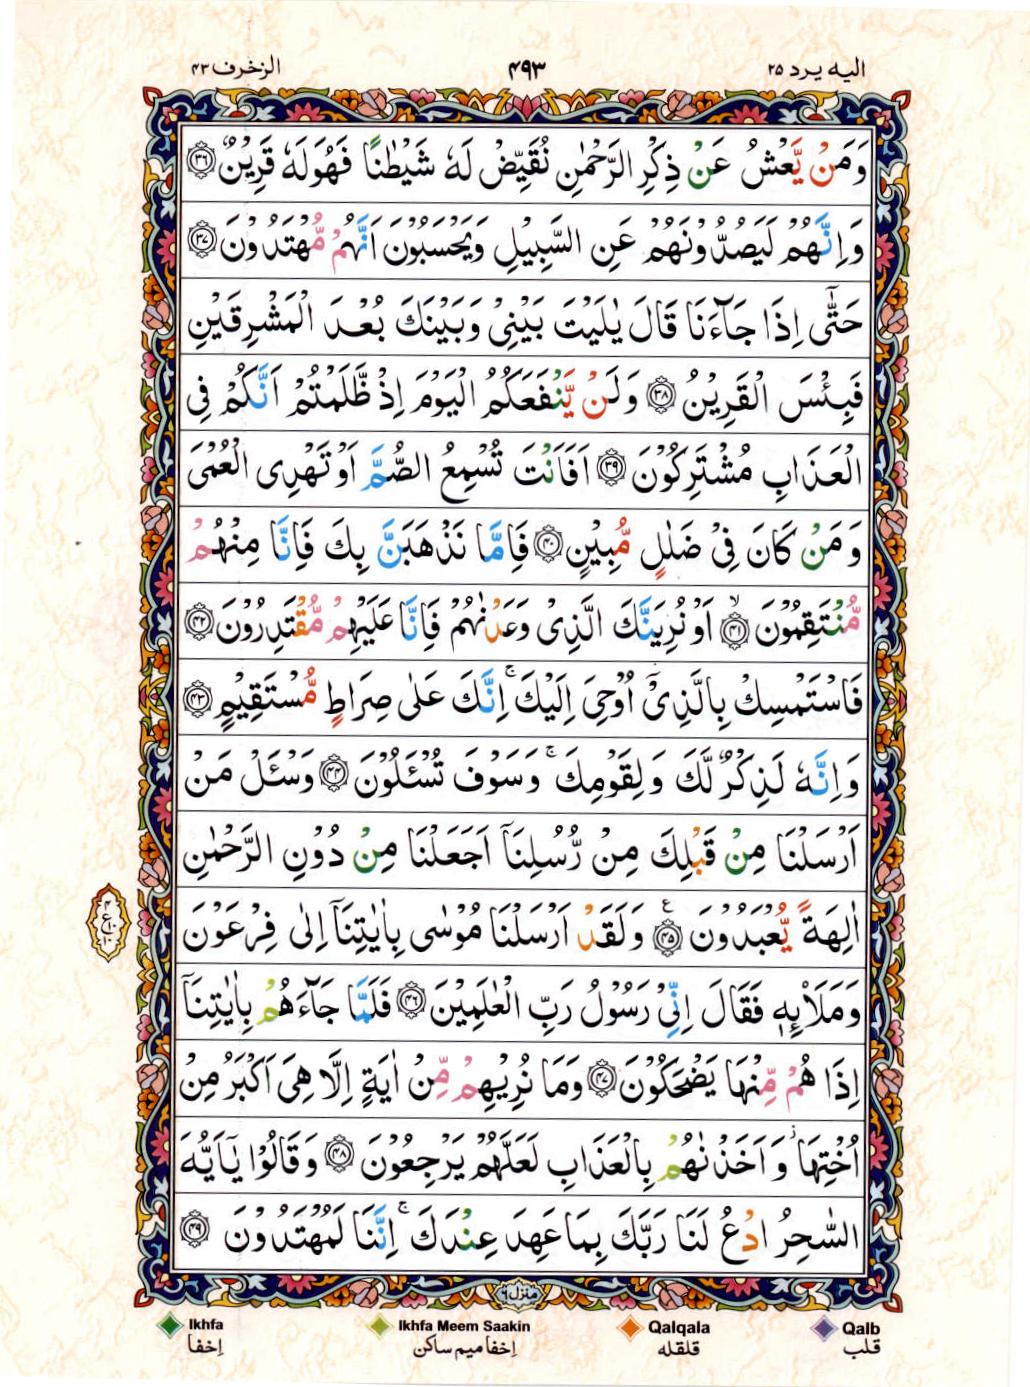 الیه یرد ۲۵
۴۹۳
الزخرف ۴۳
وَمَنْ يَّعْشُ عَنْ ذِكْرِ الرَّحْمٰنِ نُقَيِّضْ لَهٗ شَيْطٰنًا فَهُوَ لَهٗ قَرِيْنٌ ﴿۳۶﴾
وَاِنَّهُمْ لَيَصُدُّوْنَهُمْ عَنِ السَّبِيْلِ وَيَحْسَبُوْنَ اَنَّهُمْ مُّهْتَدُوْنَ ﴿۳۷﴾
حَتّٰٓى اِذَا جَآءَنَا قَالَ يٰلَيْتَ بَيْنِيْ وَبَيْنَكَ بُعْدَ الْمَشْرِقَيْنِ
فَبِئْسَ الْقَرِيْنُ ﴿۳۸﴾ وَلَنْ يَّنْفَعَكُمُ الْيَوْمَ اِذْ ظَّلَمْتُمْ اَنَّكُمْ فِى
الْعَذَابِ مُشْتَرِكُوْنَ ﴿۳۹﴾ اَفَاَنْتَ تُسْمِعُ الصُّمَّ اَوْ تَهْدِى الْعُمْىَ
وَمَنْ كَانَ فِىْ ضَلٰلٍ مُّبِيْنٍ ﴿۴۰﴾ فَاِمَّا نَذْهَبَنَّ بِكَ فَاِنَّا مِنْهُمْ
مُّنْتَقِمُوْنَ ۙ﴿۴۱﴾ اَوْ نُرِيَنَّكَ الَّذِىْ وَعَدْنٰهُمْ فَاِنَّا عَلَيْهِمْ مُّقْتَدِرُوْنَ ﴿۴۲﴾
فَاسْتَمْسِكْ بِالَّذِىْٓ اُوْحِىَ اِلَيْكَ ۚ اِنَّكَ عَلٰى صِرَاطٍ مُّسْتَقِيْمٍ ﴿۴۳﴾
وَاِنَّهٗ لَذِكْرٌ لَّكَ وَلِقَوْمِكَ ۚ وَسَوْفَ تُسْـَٔلُوْنَ ﴿۴۴﴾ وَسْـَٔلْ مَنْ
اَرْسَلْنَا مِنْ قَبْلِكَ مِنْ رُّسُلِنَآ اَجَعَلْنَا مِنْ دُوْنِ الرَّحْمٰنِ
اٰلِهَةً يُّعْبَدُوْنَ ﴿۴۵﴾ ع وَلَقَدْ اَرْسَلْنَا مُوْسٰى بِاٰيٰتِنَآ اِلٰى فِرْعَوْنَ
وَمَلَا۟ئِهٖ فَقَالَ اِنِّىْ رَسُوْلُ رَبِّ الْعٰلَمِيْنَ ﴿۴۶﴾ فَلَمَّا جَآءَهُمْ بِاٰيٰتِنَآ
اِذَا هُمْ مِّنْهَا يَضْحَكُوْنَ ﴿۴۷﴾ وَمَا نُرِيْهِمْ مِّنْ اٰيَةٍ اِلَّا هِىَ اَكْبَرُ مِنْ
اُخْتِهَا ز وَاَخَذْنٰهُمْ بِالْعَذَابِ لَعَلَّهُمْ يَرْجِعُوْنَ ﴿۴۸﴾ وَقَالُوْا يٰٓاَيُّهَ
السّٰحِرُ ادْعُ لَنَا رَبَّكَ بِمَا عَهِدَ عِنْدَكَ ۚ اِنَّنَا لَمُهْتَدُوْنَ ﴿۴۹﴾
۴
ع ۱۰
۱۰
منزل ۶
Ikhfa
Ikhfa Meem Saakin
Qalqala
Qalb
إخفا
إخفا میم ساکن
قلقله
قلب